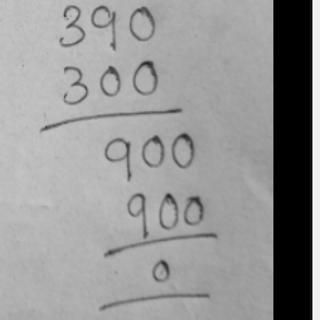 390
300
900
900
0